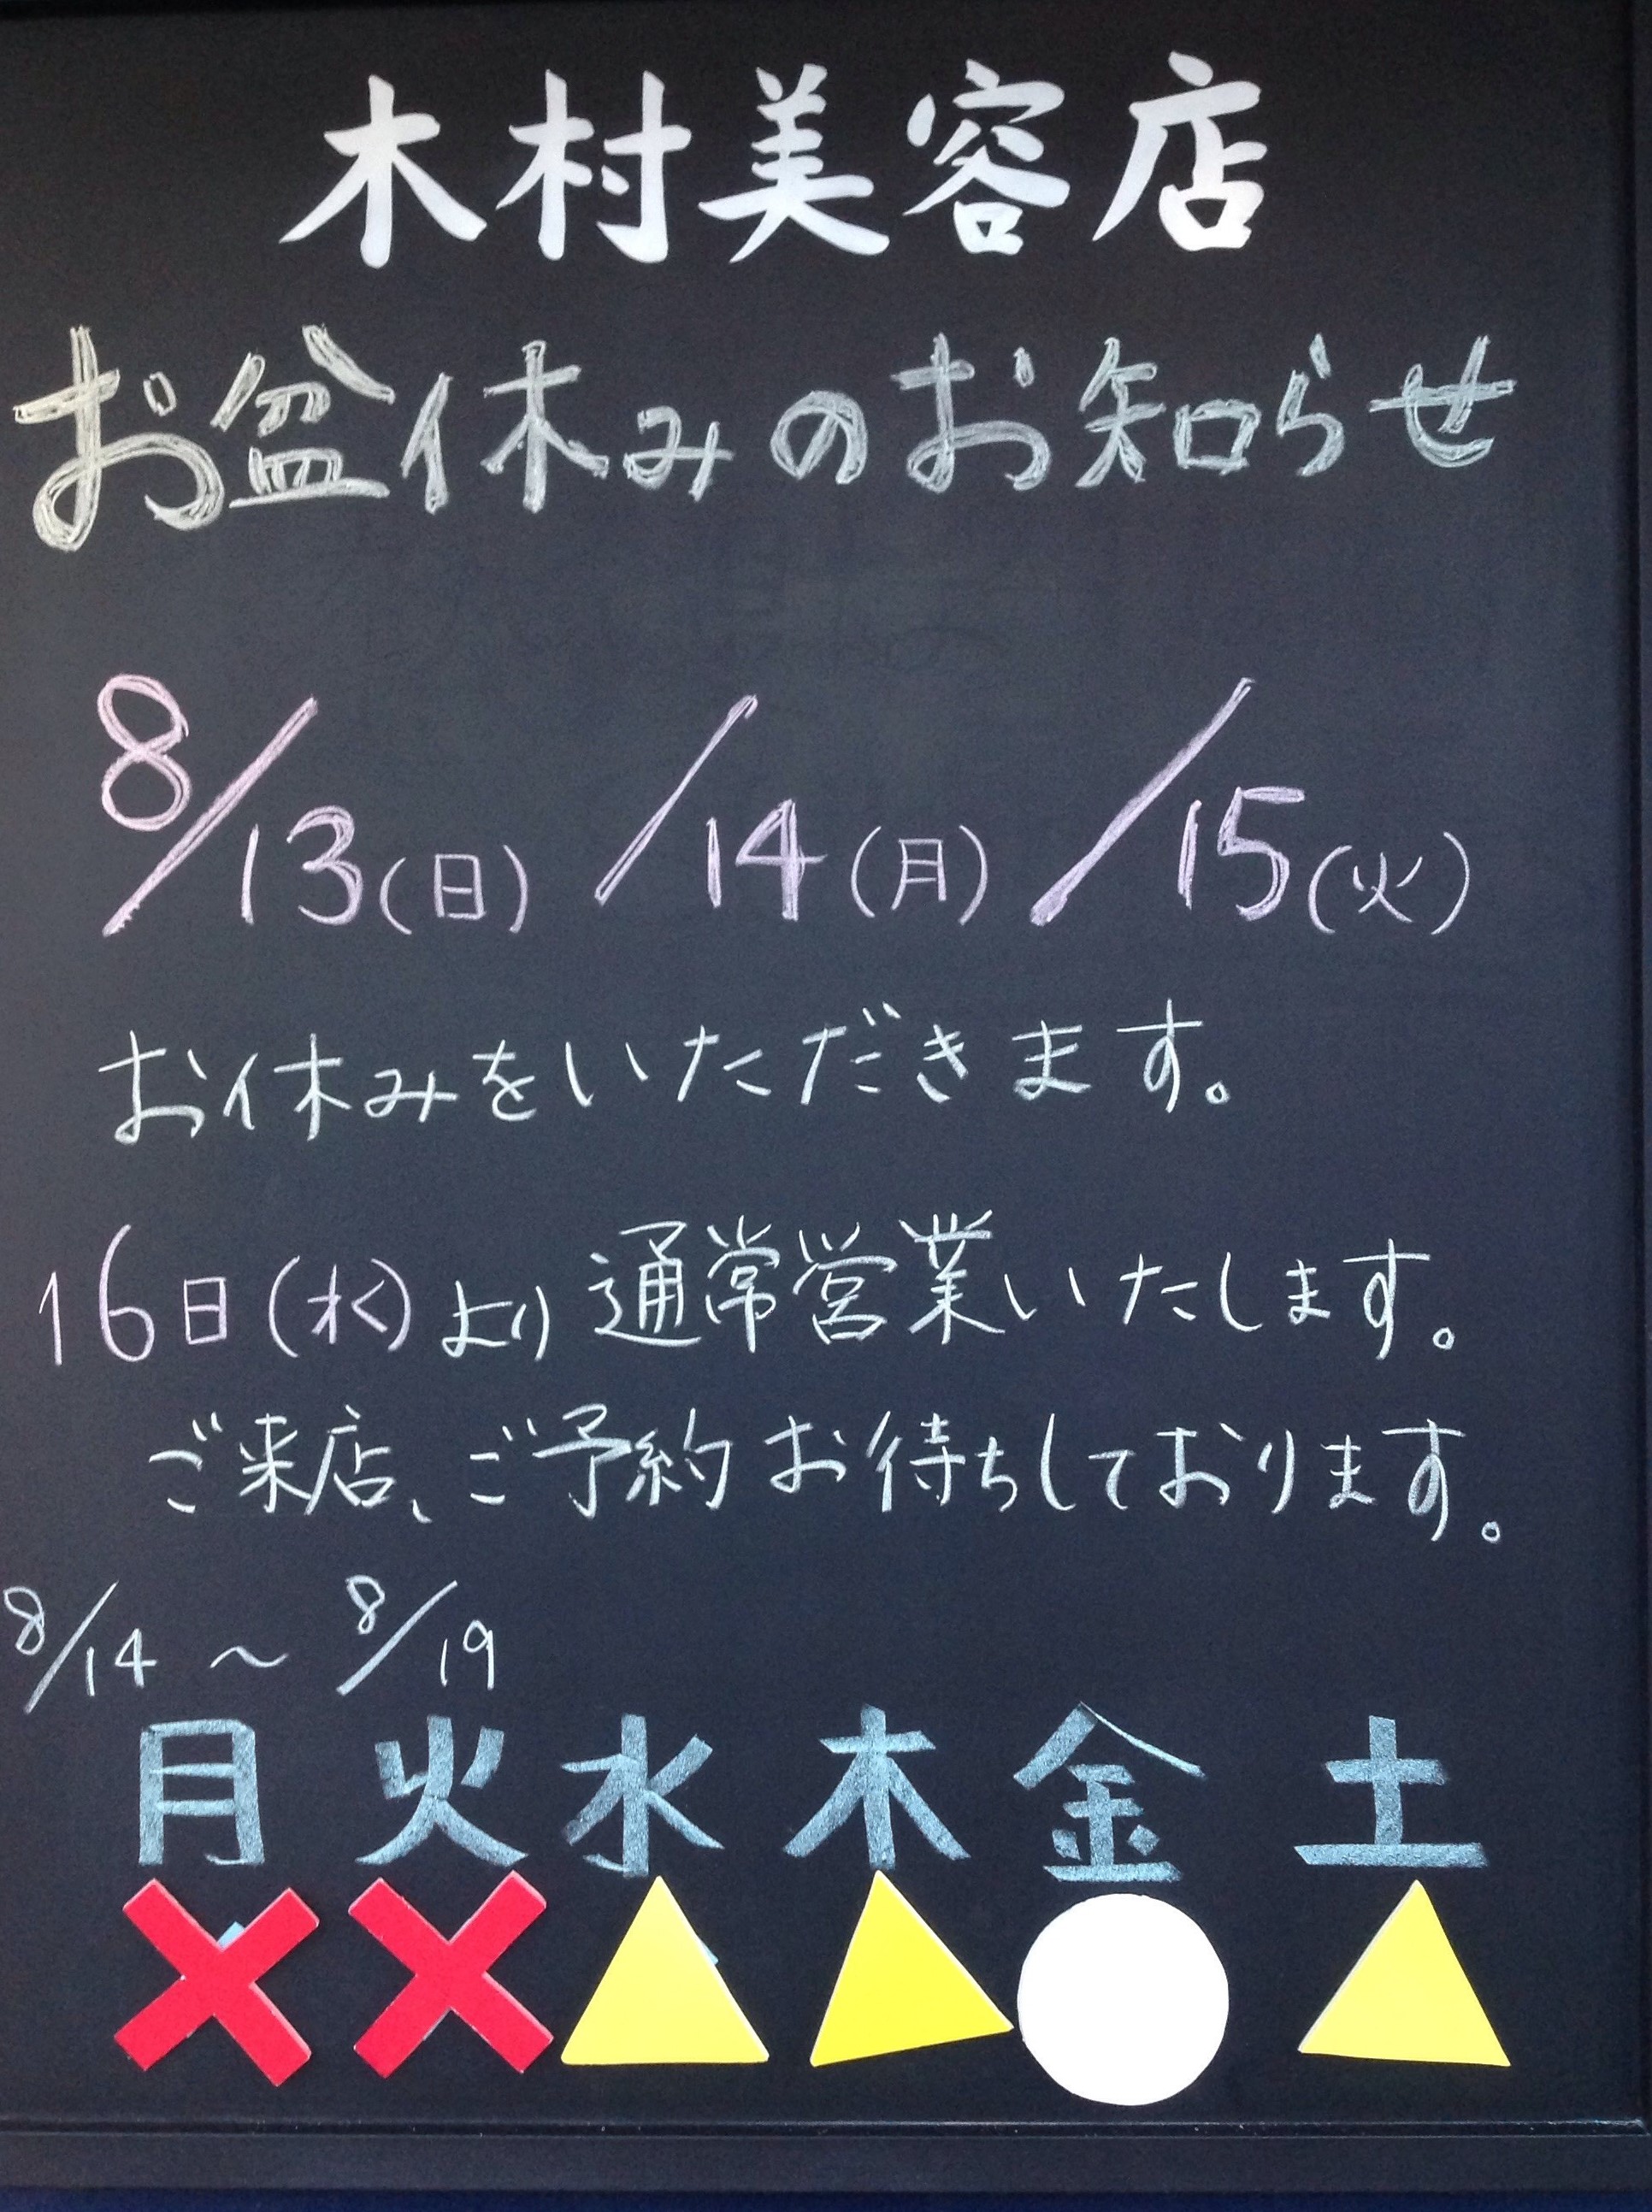 木村美容店
お盆休みのお知らせ
8/13(日) /14(月) /15(火)
お休みをいただきます。
16日(水)より通常営業いたします。
ご来店、ご予約お待ちしております。
8/14 〜 8/19
月 火 水 木 金 土